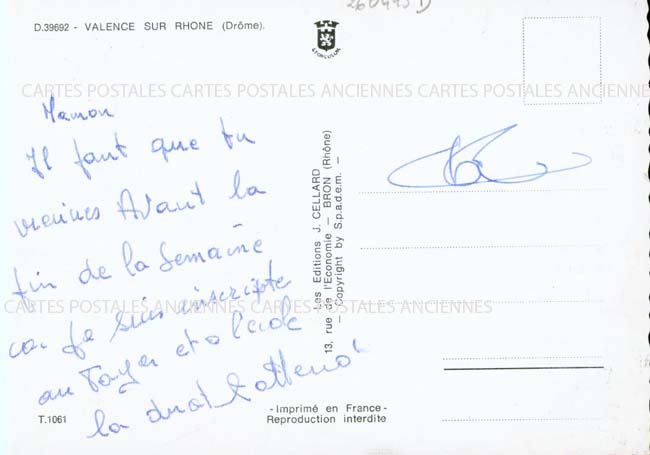 260493D
D.39692 - VALENCE SUR RHONE (Drôme).
LYONCOLOR
CARTES POSTALES CARTES POSTALES ANCIENNES CARTES POSTALES ANCIENNES
Maman
Il faut que tu
viennes Avant la
fin de la Semaine
car je suis inscripte
au Foyer et a l'ecole
la droit
CARTES POSTALES ANCIENNES CARTES POSTALES ANCIENNES
Les Editions J. CELLARD
13, rue de l'Economie — BRON (Rhône)
— Copyright by S.p.a.d.e.m. —
T.1061
- Imprimé en France -
Reproduction interdite